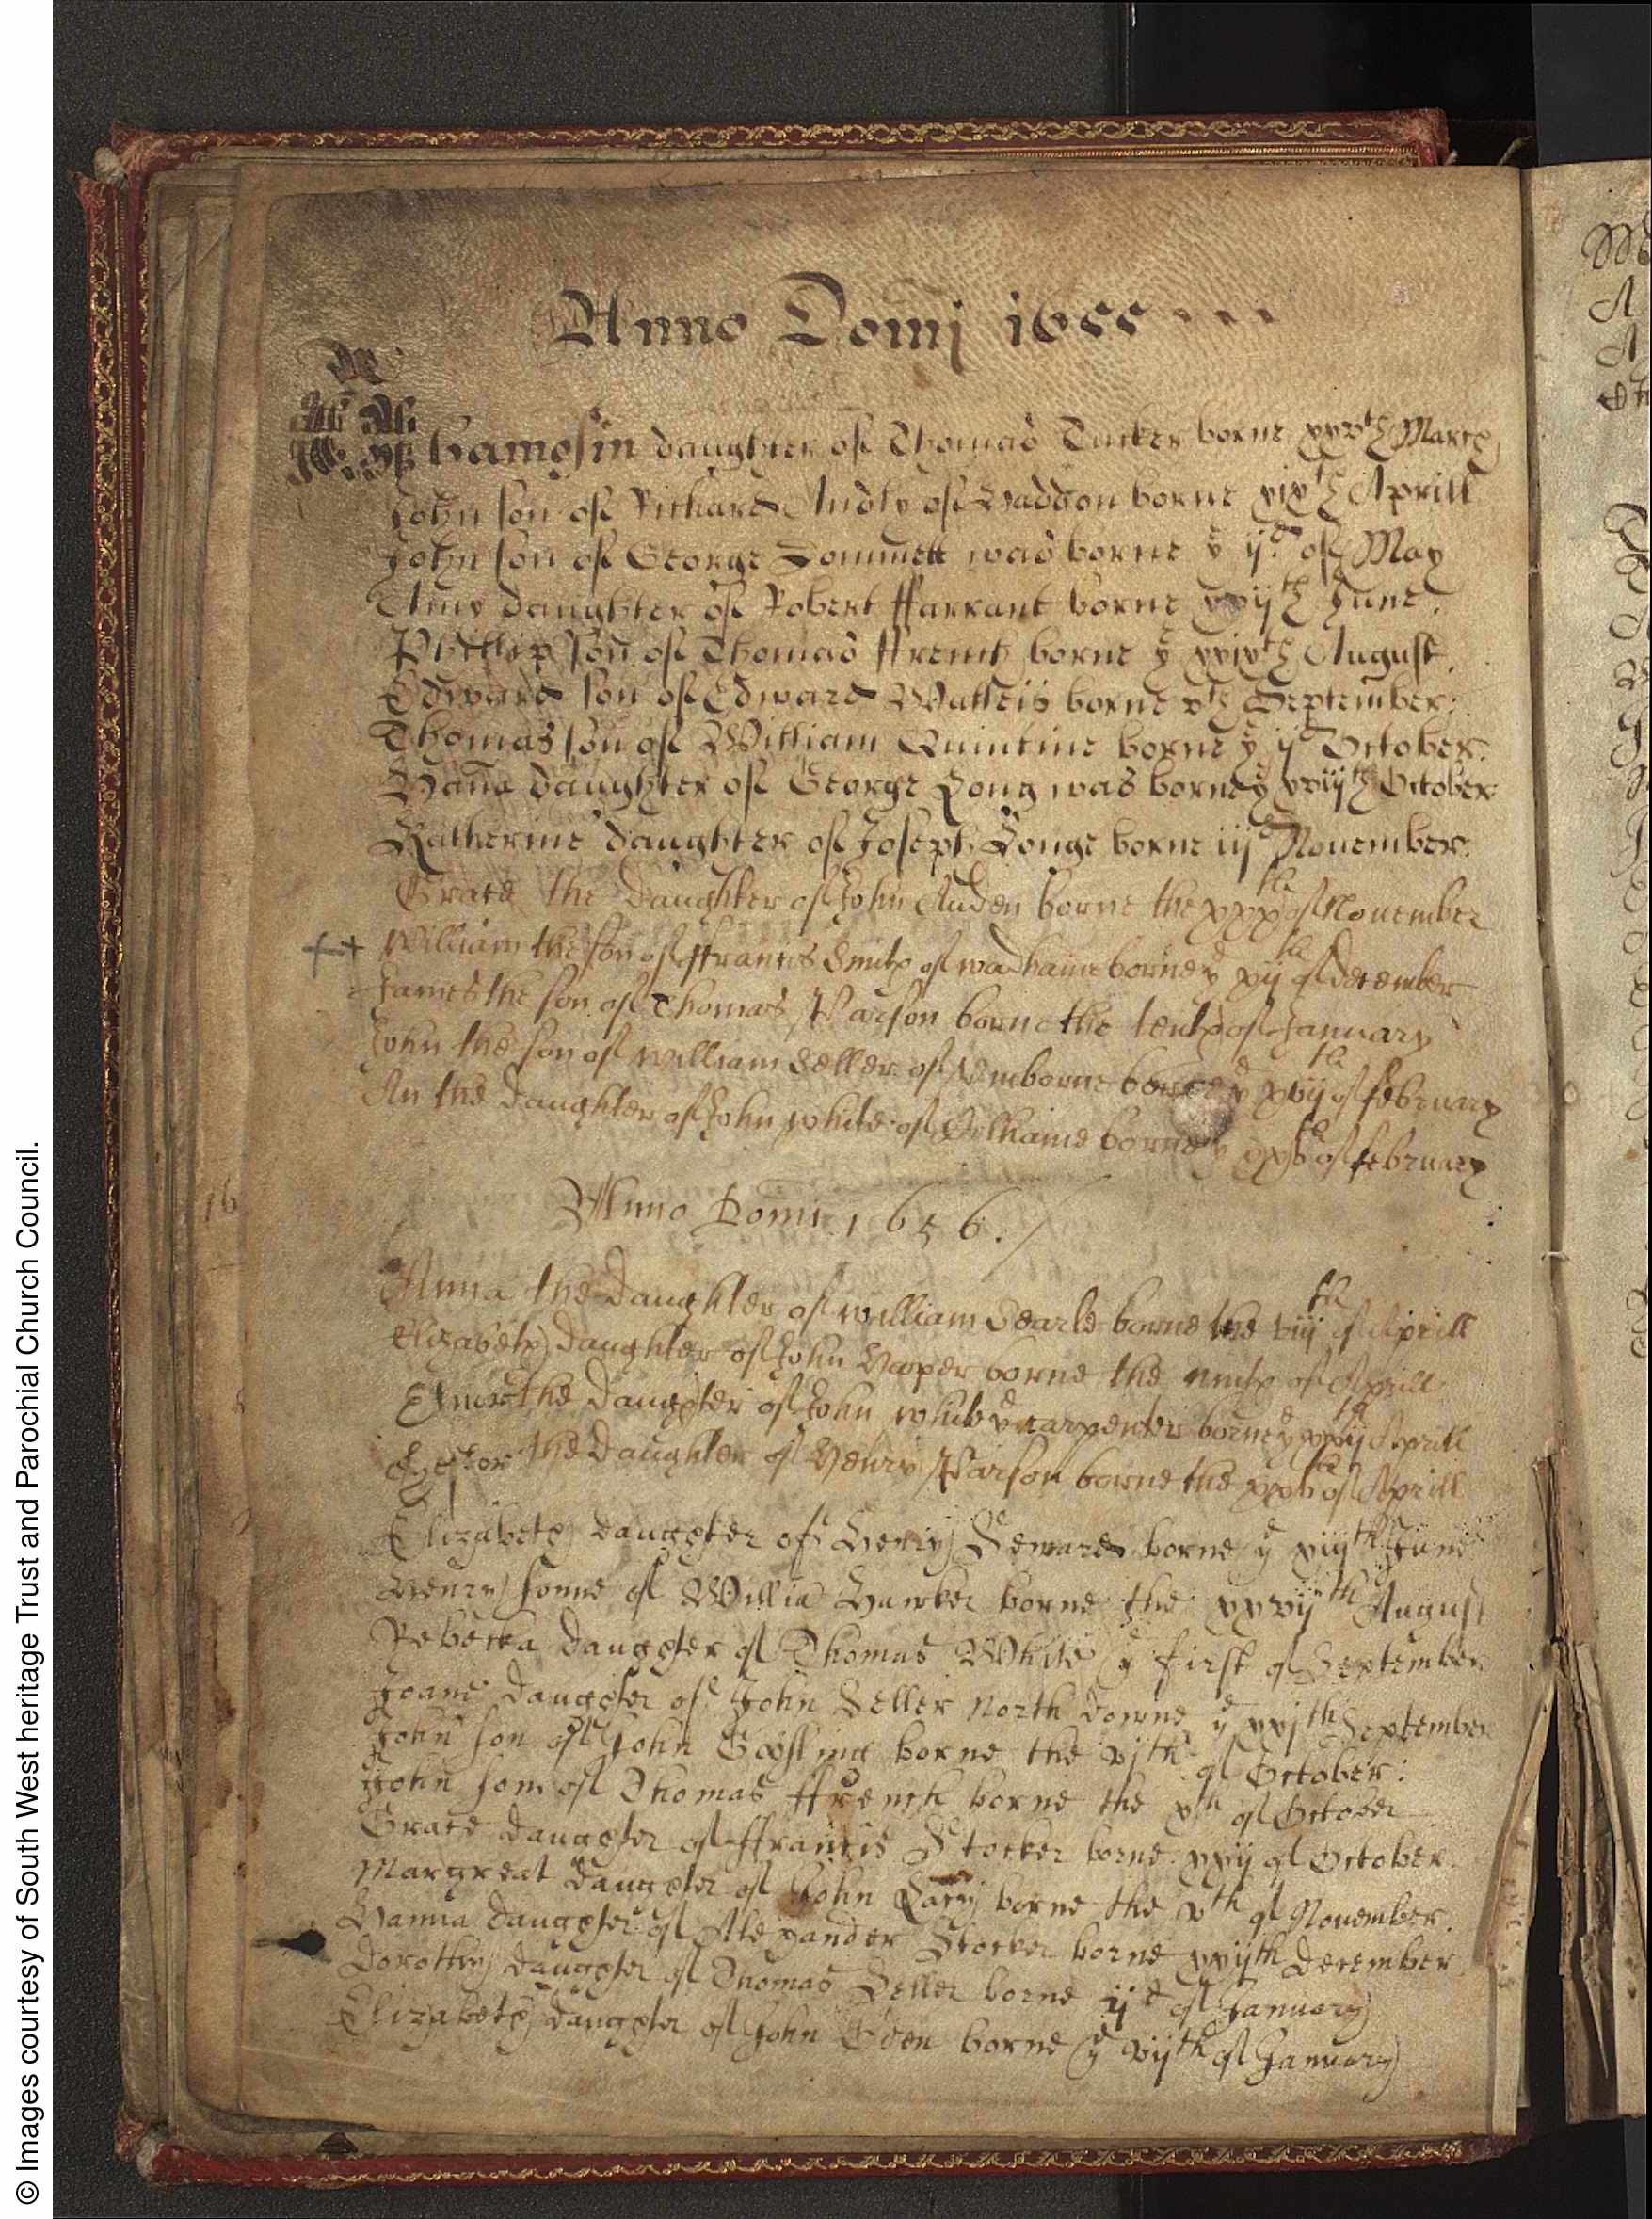 © Images courtesy of South West heritage Trust and Parochial Church Council.
Anno Domj 1655
Thamosin daughter of Thomas Tucker borne xxvth March
John son of Richard Audly of Haddon borne xixth Aprill
John son of George Dommett was borne ye ijd of May
daughter of Robert ffarrant borne June.
Phillip son of Thomas ffrench borne ye xxixth August.
Edward son of Edward borne vth September.
Thomas son of William Quintine borne ye ijd October.
Hana daughter of George Long was borne ye xviijth October
Katherine daughter of Joseph Longe borne iijd Nouember.
Grace the daughter of John Auden borne the xxxth of Nouember
William the son of ffrancis Smith of borne ye xijth of december
James the son of Thomas Parson borne the tenth of January
John the son of william Seller of borne ye xvijth of february
An the daughter of John white of borne ye xxvth of february
Anno Domi 1656.
Anna the daughter of william Searle borne the viijth of Aprill
Elizabeth daughter of John Hooper borne the ninth of Aprill
the daughter of John white ye carpenter borne ye Aprill
the daughter of Henry Parson borne the xxvth of Aprill
Elizabeth daughter of Henry Seward borne ye xiijth June
Henry sonne of Willia Hawker borne the xxvijth August
Rebecka daughter of Thomas White ye first of September
Joane daughter of John Seller North downe ye xxjth September
John son of John Gosling borne the vjth of October.
John son of Thomas ffrench borne the xth of October
Grace daughter of ffrancis Stocker borne xxij of October.
Margreat daughter of John borne the xth of Nouember.
Hanna daughter of Alexander Stocker borne xxijth December
Dorothy daughter of Thomas Seller borne ijd of January
Elizabeth daughter of John Eden borne ye vijth of January